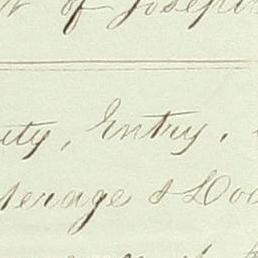 of Joseph
uty, Entry,
terage & Doc